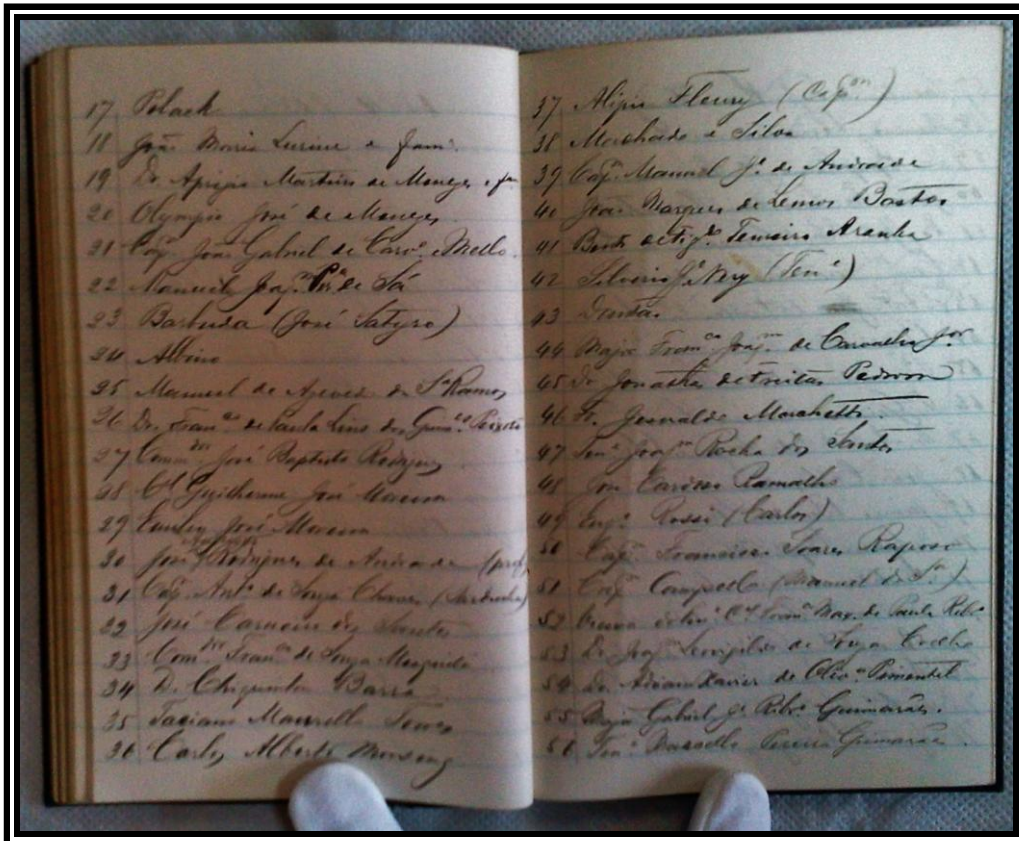 17 Polack
18 João
19 Dr. Aprigio Martins de Menezes e
20 Olympio José de Menezes
21 Cap.m João Gabriel de Carv.o e Mello
22 Manuel Joaq.m P.ra de Sá
23 Barbuda (José Satyro)
24 Albino
25 Manuel de Azevedo da S.a Ramos
26 Dr. Fran.co de Paula Lins dos Guim.es Peixoto
27 Comm.dor José Baptista
28 C.el Guilherme José Moreira
29 Emilio José Moreira
30 José Rodrigues de
31 Cap. Ant.o de Souza Chaves
32 José Carneiro dos Santos
33 Com.dor Fran.co de Souza Mesquita
34 D. Chiquinha Barra
35 Taciano
36 Carlos Alberto
37 Alipio Fleury (Cap.m)
38 Machado e Silva
39 Cap. Manuel J.e de Andrade
40 João Marques de Lemos Bastos
41 Bento de Tenreiro Aranha
42 Silverio J.e Nery (Ten.e)
43 Dantas
44 Major Fran.co Joaq.m de Carvalho J.or
45 Dr. Jonathas de Freitas Pedrosa
46 Gesualdo Marchetti
47 Ten.e Joaq.m Rocha dos Santos
48 Ramalho
49 Eng.o Rossi (Carlos)
50 Cap. Francisco Soares Raposo
51 Cap. (Manuel da S.a)
52 Viuva C.el de Paula Rib.o
53 Dr. Joaq. de Souza Coelho
54 Dr. Xavier de Oliv.a Pimentel
55 Major Gabriel Rib.o Guimarães.
56 Ten.e Pereira Guimarães